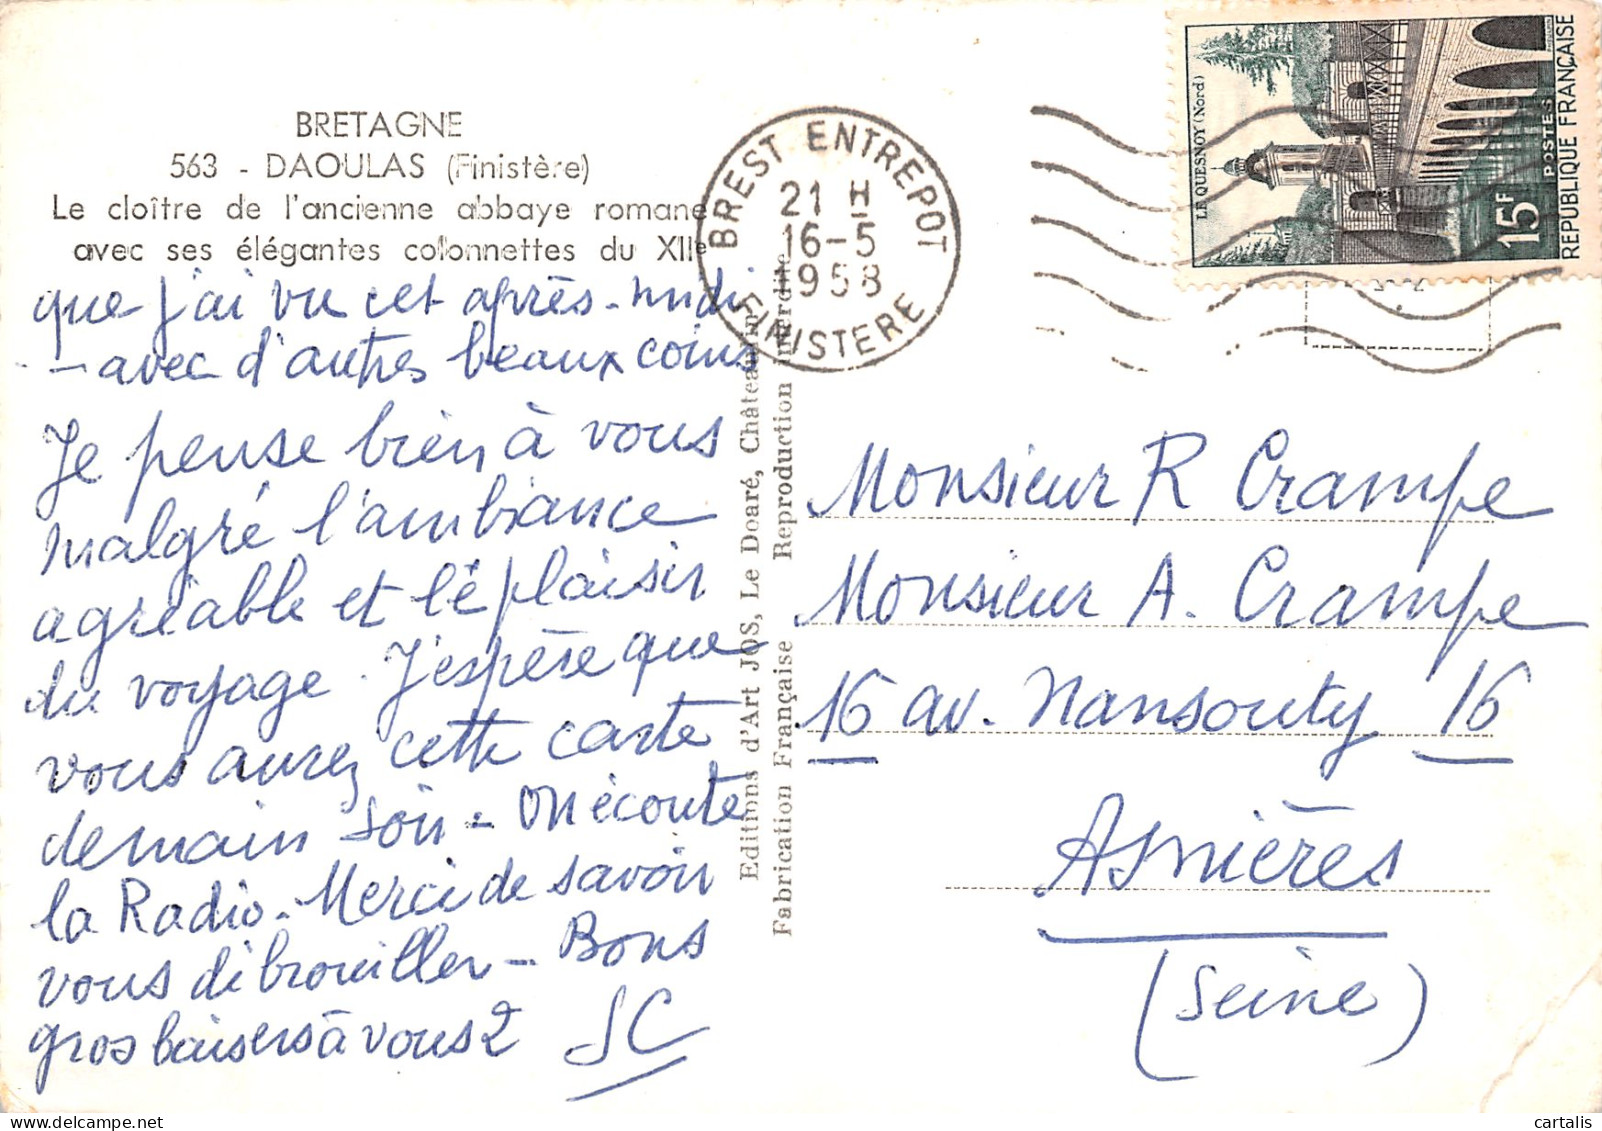 BRETAGNE
563 - DAOULAS (Finistère)
Le cloître de l'ancienne abbaye romane
avec ses élégantes colonnettes du XIIe
que j'ai vu cet après-midi
- avec d'autres beaux coins
Je pense bien à vous
malgré l'ambiance
agréable et le plaisir
du voyage. J'espère que
vous aurez cette carte
demain soir - On écoute
la Radio - Merci de savoir
vous débrouiller - Bons
gros baisers à vous 2 SC
Editions d'Art JOS, Le Doaré, Châteaulin
Fabrication Française Reproduction interdite
BREST ENTREPOT
21 H
16-5
1958
FINISTERE
LE QUESNOY (Nord)
15F
POSTES
REPUBLIQUE FRANÇAISE
Monsieur R Crampe
Monsieur A. Crampe
16 av. Nansouty 16
Asnières
(Seine)
cartalis